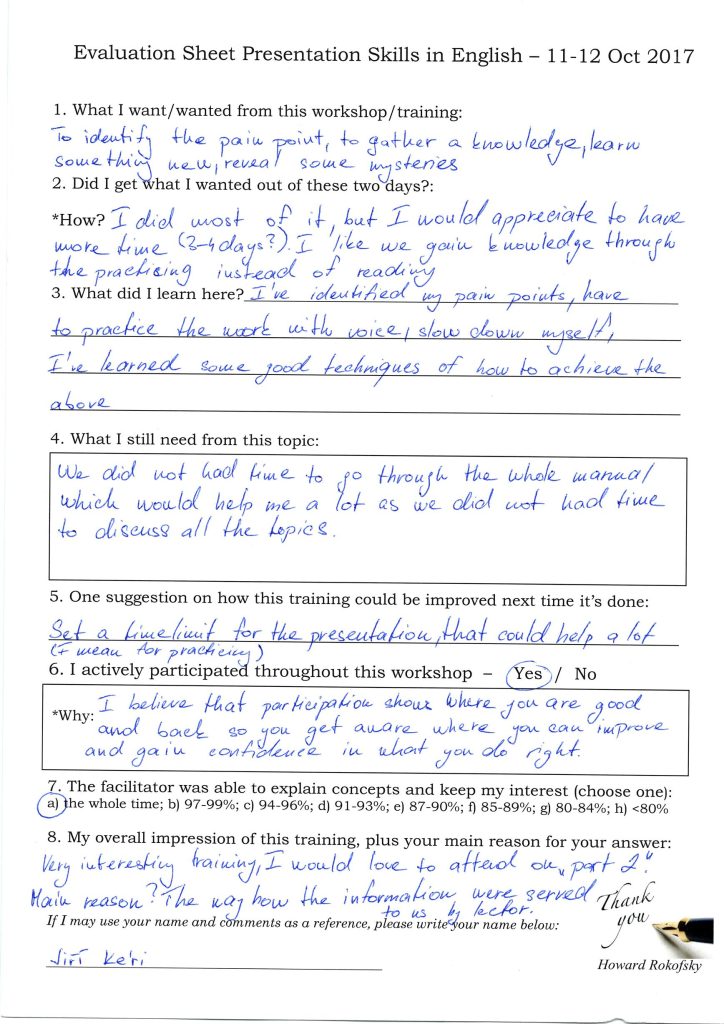 Evaluation Sheet Presentation Skills in English – 11-12 Oct 2017
1. What I want/wanted from this workshop/training:
To identify the pain point, to gather a knowledge, learn
something new, reveal some mysteries
2. Did I get what I wanted out of these two days?:
*How? I did most of it, but I would appreciate to have
more time (3-4 days?). I like we gain knowledge through
the practicing instead of reading
3. What did I learn here? I've identified my pain points, have
to practice the work with voice, slow down myself,
I've learned some good techniques of how to achieve the
above
4. What I still need from this topic:
We did not had time to go through the whole manual
which would help me a lot as we did not had time
to discuss all the topics.
5. One suggestion on how this training could be improved next time it's done:
Set a timelimit for the presentation, that could help a lot
(I mean for practicing)
6. I actively participated throughout this workshop – Yes / No
*Why: I believe that participation shows where you are good
and back so you get aware where you can improve
and gain confidence in what you do right.
7. The facilitator was able to explain concepts and keep my interest (choose one):
a) the whole time; b) 97-99%; c) 94-96%; d) 91-93%; e) 87-90%; f) 85-89%; g) 80-84%; h) <80%
8. My overall impression of this training, plus your main reason for your answer:
Very interesting training, I would love to attend on „part 2"
Main reason? The way how the information were served
to us by lector.
Thank
you
If I may use your name and comments as a reference, please write your name below:
Jiří
Howard Rokofsky